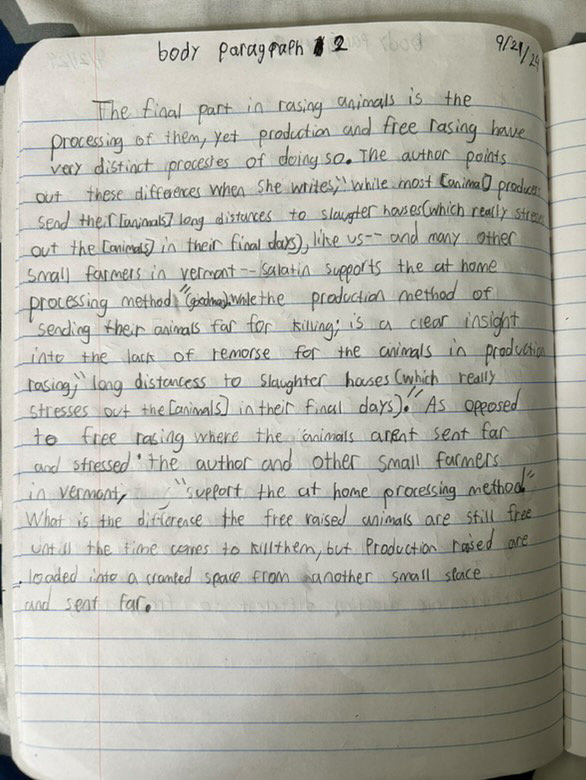 body paragraph 2
9/21/24
The final part in rasing animals is the
processing of them, yet production and free rasing have
very distinct processes of doing so. The author points
out these differences when she writes," while most [animal] produces
send their [animals] long distances to slaugter houses (which really stress
out the [animals] in their final days), like us-- and many other
small farmers in vermont -- Salatin supports the at home
processing method" while the production method of
sending their animals far for killing; is a clear insight
into the lack of remorse for the animals in production
rasing," long distancess to slaughter houses (which really
stresses out the [animals] in their final days)." As opposed
to free rasing where the animals arent sent far
and stressed the author and other small farmers
in vermont, "support the at home processing method"
What is the difference the free raised animals are still free
untill the time comes to kill them, but Production raised are
loaded into a space from another small space
and sent far.